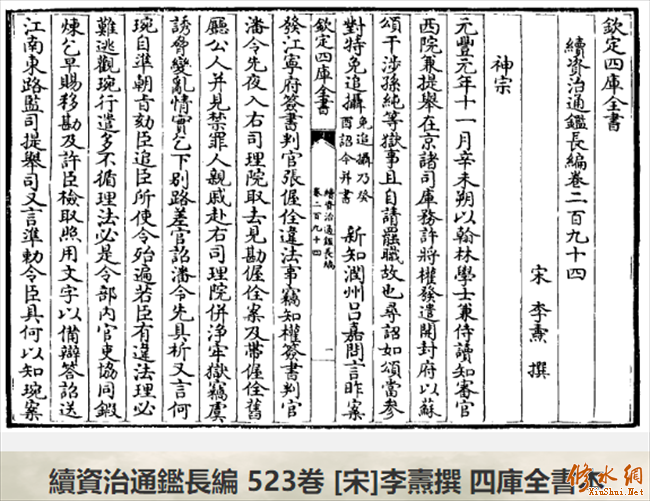 欽定四庫全書
續資治通鑑長編卷二百九十四
宋 李燾 撰
神宗
元豐元年十一月辛未朔以翰林學士兼侍讀知審官
西院兼提舉在京諸司庫務許將權發遣開封府以蘇
頌干涉孫純等獄事且自請罷職故也尋詔如頌當參
對特免追攝 免追攝乃癸酉詔今并書 新知潤州呂嘉問言昨案
欽定四庫全書
續資治通鑑長編
卷二百九十四
一
發江寧府簽書判官張偓佺違法事竊知權簽書判官
潘令先夜入右司理院取去見勘偓佺案及帶偓佺舊
廳公人并見禁罪人親戚赴右司理院併淨牢獄竊虞
誘脅變亂情實乞下別路差官詔潘令先具析又言何
琬自準朝旨劾臣追臣所使令殆遍若臣有違法理必
難逃觀琬行遣多不循理法必是令部內官吏協同鍜
煉乞早賜移勘及許臣檢取照用文字以備辯答詔送
江南東路監司提舉司又言準勅令臣具何以知琬案
續資治通鑑長編 523卷 [宋]李燾撰 四庫全書本
修水網
XiuShui.Net